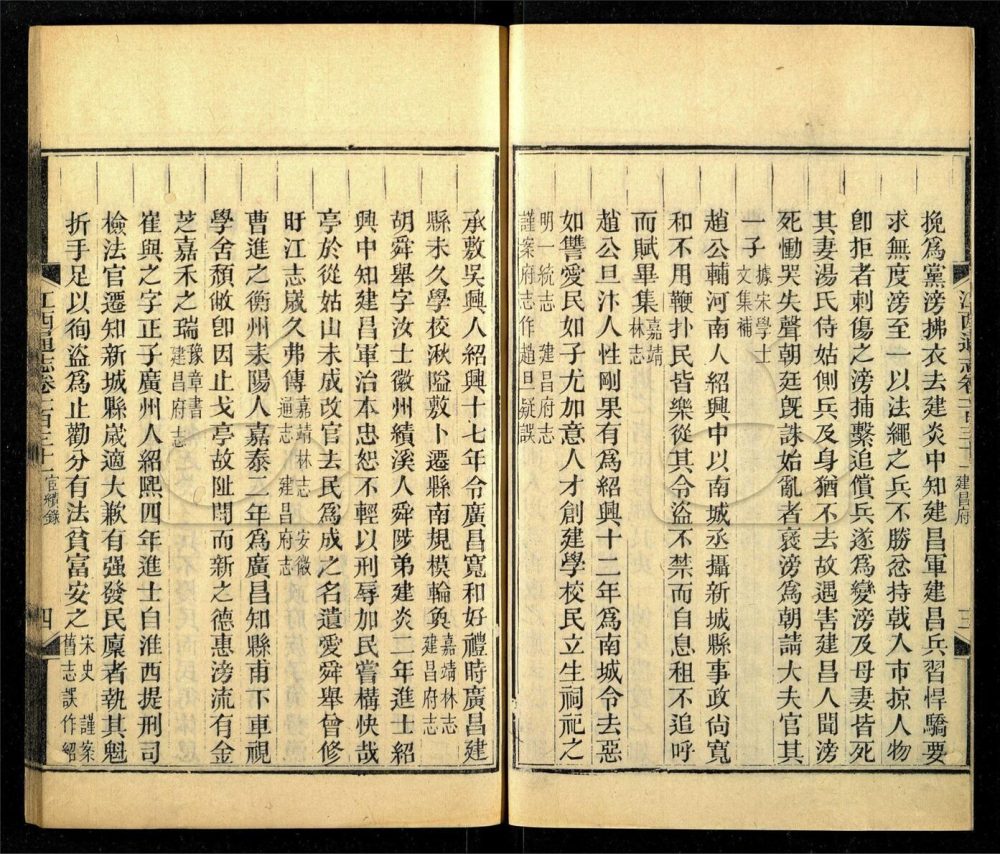 挽爲黨滂拂衣去建炎中知建昌軍建昌兵習悍驕要
求無度滂至一以法繩之兵不勝忿持戟入市掠人物
卽拒者刺傷之滂捕繫追償兵遂爲變滂及母妻皆死
其妻湯氏侍姑側兵及身猶不去故遇害建昌人聞滂
死慟哭失聲朝廷旣誅始亂者褒滂爲朝請大夫官其
一子據宋學士文集補
趙公輔河南人紹興中以南城丞攝新城縣事政尙寬
和不用鞭扑民皆樂從其令盜不禁而自息租不追呼
而賦畢集嘉靖林志
趙公旦汴人性剛果有爲紹興十三年爲南城令去惡
如讐愛民如子尤加意人才創建學校民立生祠祀之
明一統志 建昌府志
謹案府志作趙旦疑誤
江西通志卷一百三十一 建昌府
三
承敷吳興人紹興十七年令廣昌寬和好禮時廣昌建
縣未久學校湫隘敷卜遷縣南規模輪奐嘉靖林志 建昌府志
胡舜舉字汝士徽州績溪人舜陟弟建炎二年進士紹
興中知建昌軍治本忠恕不輕以刑辱加民嘗構快哉
亭於從姑山未成改官去民爲成之名遺愛舜舉曾修
盱江志歲久弗傳嘉靖林志 安徽通志 建昌府志
曹進之衡州耒陽人嘉泰二年爲廣昌知縣甫下車視
學舍頹敝卽因止戈亭故阯闢而新之德惠滂流有金
芝嘉禾之瑞豫章書 建昌府志
崔與之字正子廣州人紹熙四年進士自淮西提刑司
檢法官遷知新城縣歲適大歉有强發民廩者執其魁
折手足以徇盜爲止勸分有法貧富安之宋史 謹案舊志誤作紹
江西通志卷一百三十一 宦績錄
四